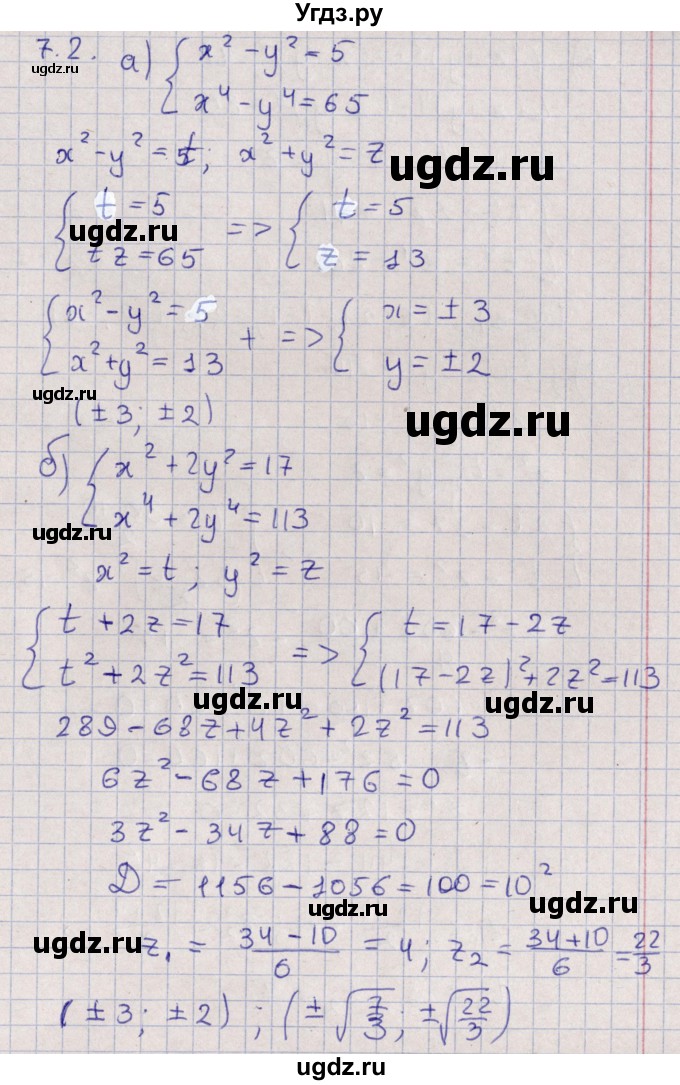 Угдз.ру
7.2. а) { x² - y² = 5
x⁴ - y⁴ = 65
ugdz.ru
x² - y² = t; x² + y² = z
ugdz.ru
{ t = 5 => { t = 5
ugdz.ru
tz = 65 z = 13
{ x² - y² = 5 + => { x = ± 3
x² + y² = 13 y = ± 2
ugdz.ru
(± 3; ± 2)
ugdz.ru
б) { x² + 2y² = 17
x⁴ + 2y⁴ = 113
ugdz.ru
x² = t; y² = z
{ t + 2z = 17 => { t = 17 - 2z
t² + 2z² = 113 (17 - 2z)² + 2z² = 113
ugdz.ru ugdz.ru
289 - 68z + 4z² + 2z² = 113
6z² - 68z + 176 = 0
3z² - 34z + 88 = 0
D = 1156 - 1056 = 100 = 10²
ugdz.ru
ugdz.ru z₁ = (34 - 10)/6 = 4; z₂ = (34 + 10)/6 = 22/3
(± 3; ± 2); (± √(7/3); ± √(22/3))
ugdz.ru ugdz.ru